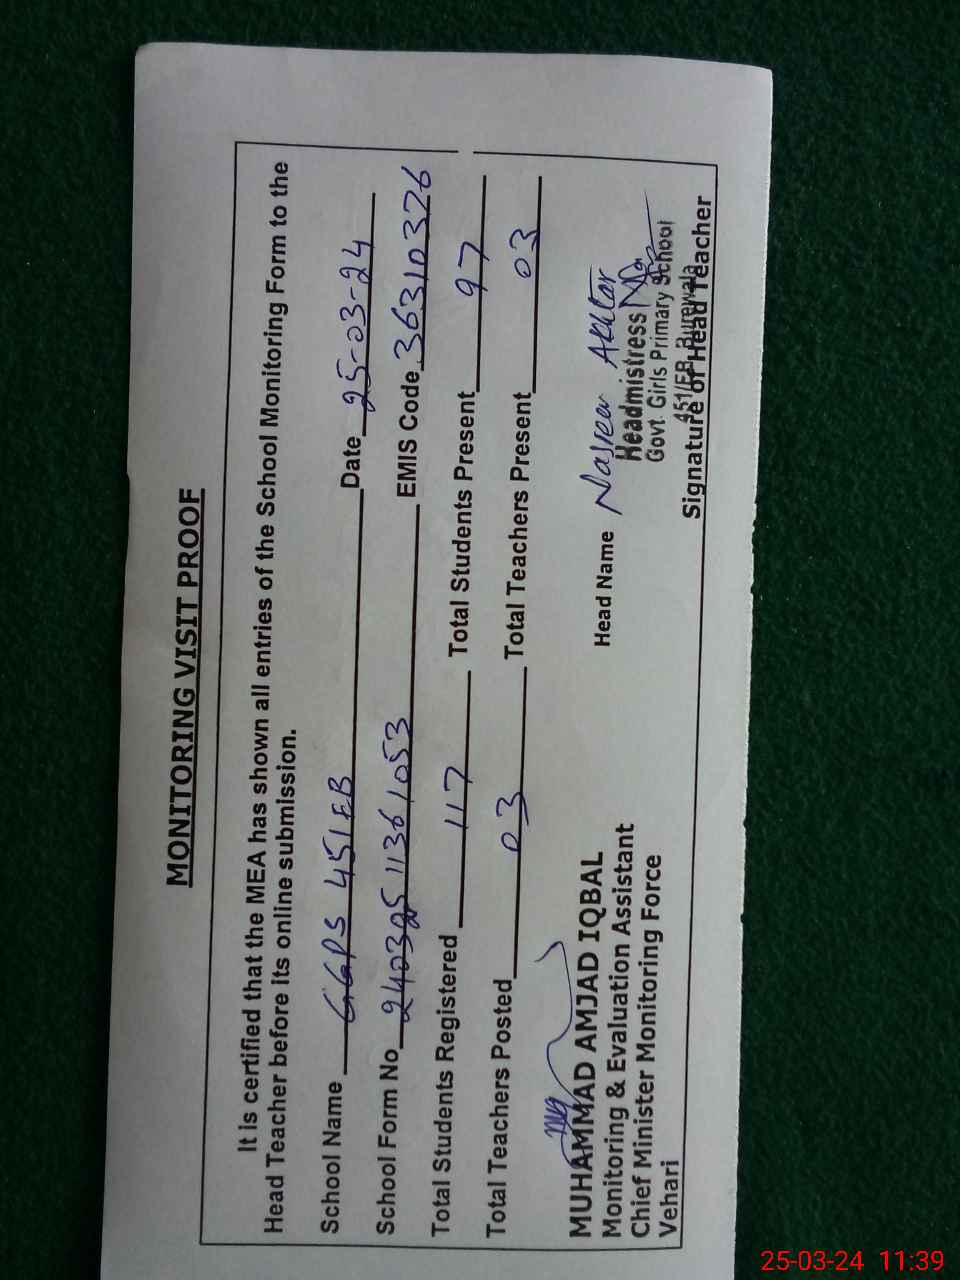 MONITORING VISIT PROOF
It is certified that the MEA has shown all entries of the School Monitoring Form to the
Head Teacher before its online submission.
School Name GGPS 451EB Date 25-03-24
School Form No 24032511361053 EMIS Code 36310326
Total Students Registered 117 Total Students Present 97
Total Teachers Posted 03 Total Teachers Present 03
MUHAMMAD AMJAD IQBAL
Monitoring & Evaluation Assistant
Chief Minister Monitoring Force
Vehari
Head Name Nasreen Akhtar
Headmistress
Govt. Girls Primary School
451/EB Burewala
Signature of Head Teacher
25-03-24 11:39